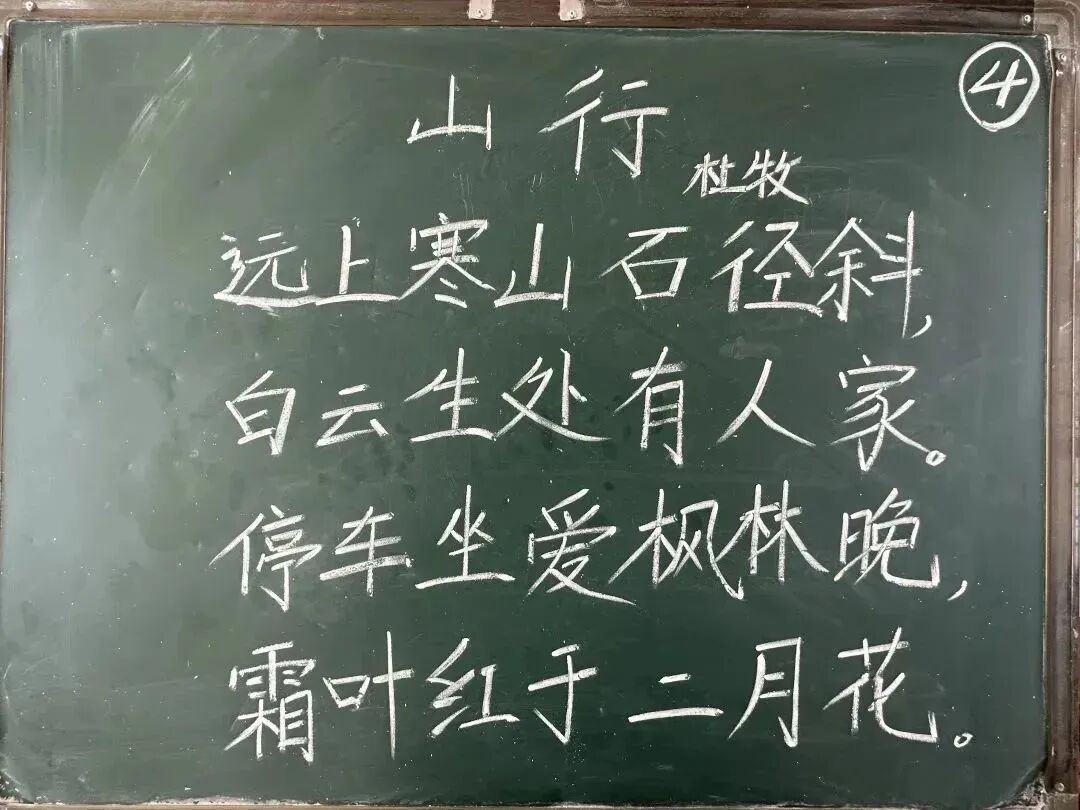 ④
山行
杜牧
远上寒山石径斜,
白云生处有人家。
停车坐爱枫林晚,
霜叶红于二月花。